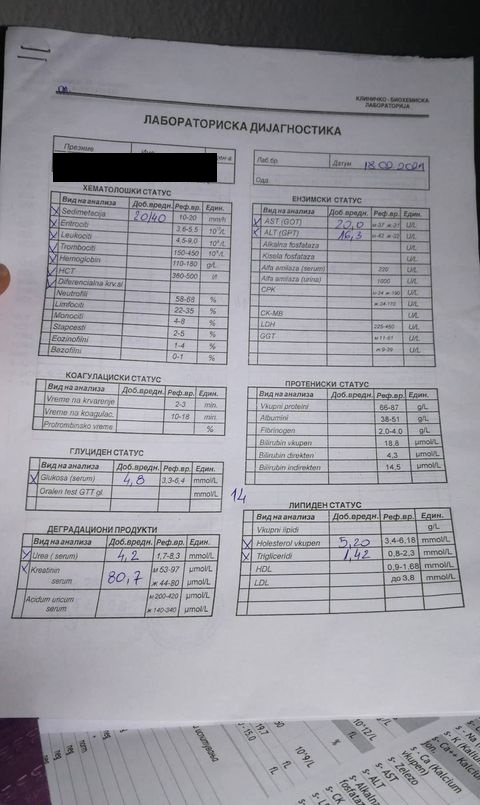 КЛИНИЧКО - БИОХЕМИСКА
ЛАБОРАТОРИЈА
ЛАБОРАТОРИСКА ДИЈАГНОСТИКА
Презиме
Лаб.бр.
Датум 18.02.2021
Одд.
ХЕМАТОЛОШКИ СТАТУС
Вид на анализа Доб.вредн. Реф.вр. Един.
x Sedimetacija 20/40 10-20 mm/h
x Eritrociti 3,6-5,5
x Leukociti 4,5-9,0
x Trombociti 150-450
x Hemoglobin 110-180 g/L
x HCT 380-500
x Diferencialna krv.sl
Neutrofili 58-68 %
Limfociti 22-35 %
Monociti 4-8 %
Stapcesti 2-5 %
Eozinofilni 1-4 %
Bazofilni 0-1 %
КОАГУЛАЦИСКИ СТАТУС
Вид на анализа Доб.вредн. Реф.вр. Един.
Vreme na krvarenje 2-3 min.
Vreme na koagulac. 10-18 min.
Protrombinsko vreme %
ГЛУЦИДЕН СТАТУС
Вид на анализа Доб.вредн. Реф.вр. Един.
x Glukosa (serum) 4,8 3,3-6,4 mmol/L
Oralen test GTT gl. mmol/L
ДЕГРАДАЦИОНИ ПРОДУКТИ
Вид на анализа Доб.вредн. Реф.вр. Един.
x Urea ( serum) 4,2 1,7-8,3 mmol/L
x Kreatinin м 53-97 µmol/L
serum 80,7 ж 44-80 µmol/L
Acidum uricum м 200-420 µmol/L
serum ж 140-340 µmol/L
ЕНЗИМСКИ СТАТУС
Вид на анализа Доб.вредн. Реф.вр. Един.
x AST (GOT) 20,0 м-37 ж-31 U/L
x ALT (GPT) 16,3 м-42 ж-32 U/L
Alkalna fosfataza U/L
Kisela fosfataza U/L
Alfa amilaza (serum) 220 U/L
Alfa amilaza (urina) 1000 U/L
CPK U/L
ж 24-170
CK-MB U/L
LDH 225-450 U/L
GGT м 11-61 U/L
ж 9-39 U/L
ПРОТЕИНСКИ СТАТУС
Вид на анализа Доб.вредн. Реф.вр. Един.
Vkupni proteini 66-87 g/L
Albumini 38-51 g/L
Fibrinogen 2.0-4.0 g/L
Bilirubin vkupen 18,8 µmol/L
Bilirubin direkten 4,3 µmol/L
Bilirubin indirekten 14,5 µmol/L
14
ЛИПИДЕН СТАТУС
Вид на анализа Доб.вредн. Реф.вр. Един.
Vkupni lipidi g/L
x Holesterol vkupen 5,20 3,4-6,18 mmol/L
x Trigliceridi 1,42 0,8-2,3 mmol/L
HDL 0,9-1.68 mmol/L
LDL до 3,8 mmol/L
19.7
- 15.0
fL
%
10^9/L
fL
10^12/L
s- Alkalna
fosfataza
s- ALT
s- AST
s- Zelezo
vkupen)
s- Ca (Kalcium
s- Ca++ Kalcium
jon.
s- K (Kalium
s- Na